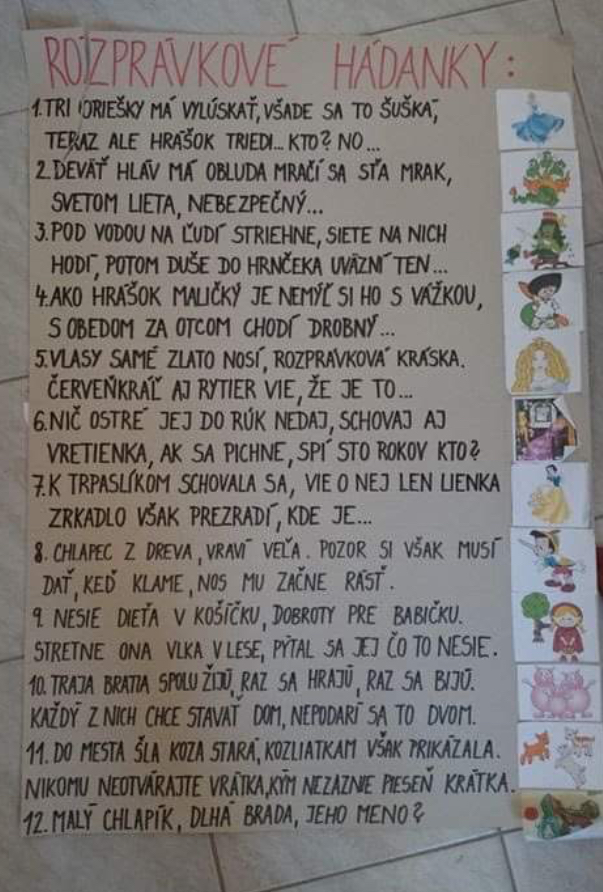 ROZPRÁVKOVÉ HÁDANKY:
1. TRI ORIEŠKY MÁ VYLÚSKAŤ, VŠADE SA TO ŠUŠKÁ,
TERAZ ALE HRÁŠOK TRIEDI... KTO? NO...
2. DEVÄŤ HLÁV MÁ OBLUDA MRAČÍ SA SŤA MRAK,
SVETOM LIETA, NEBEZPEČNÝ...
3. POD VODOU NA ĽUDÍ STRIEHNE, SIETE NA NICH
HODÍ, POTOM DUŠE DO HRNČEKA UVÄZNÍ TEN...
4. AKO HRÁŠOK MALIČKÝ JE NEMÝĽ SI HO S VÁŽKOU,
S OBEDOM ZA OTCOM CHODÍ DROBNÝ...
5. VLASY SAMÉ ZLATO NOSÍ, ROZPRÁVKOVÁ KRÁSKA.
ČERVEŇKRÁĽ AJ RYTIER VIE, ŽE JE TO...
6. NIČ OSTRÉ JEJ DO RÚK NEDAJ, SCHOVAJ AJ
VRETIENKA, AK SA PICHNE, SPÍ STO ROKOV KTO?
7. K TRPASLÍKOM SCHOVALA SA, VIE O NEJ LEN LIENKA
ZRKADLO VŠAK PREZRADÍ, KDE JE...
8. CHLAPEC Z DREVA, VRAVÍ VEĽA. POZOR SI VŠAK MUSÍ
DAŤ, KEĎ KLAME, NOS MU ZAČNE RÁSŤ.
9. NESIE DIEŤA V KOŠÍČKU, DOBROTY PRE BABIČKU.
STRETNE ONA VLKA V LESE, PÝTAL SA JEJ ČO TO NESIE.
10. TRAJA BRATIA SPOLU ŽIJÚ, RAZ SA HRAJÚ, RAZ SA BIJÚ.
KAŽDÝ Z NICH CHCE STAVAŤ DOM, NEPODARÍ SA TO DVOM.
11. DO MESTA ŠLA KOZA STARÁ, KOZLIATKAM VŠAK PRIKÁZALA.
NIKOMU NEOTVÁRAJTE VRÁTKA, KÝM NEZAZNIE PIESEŇ KRÁTKA.
12. MALÝ CHLAPÍK, DLHÁ BRADA, JEHO MENO?